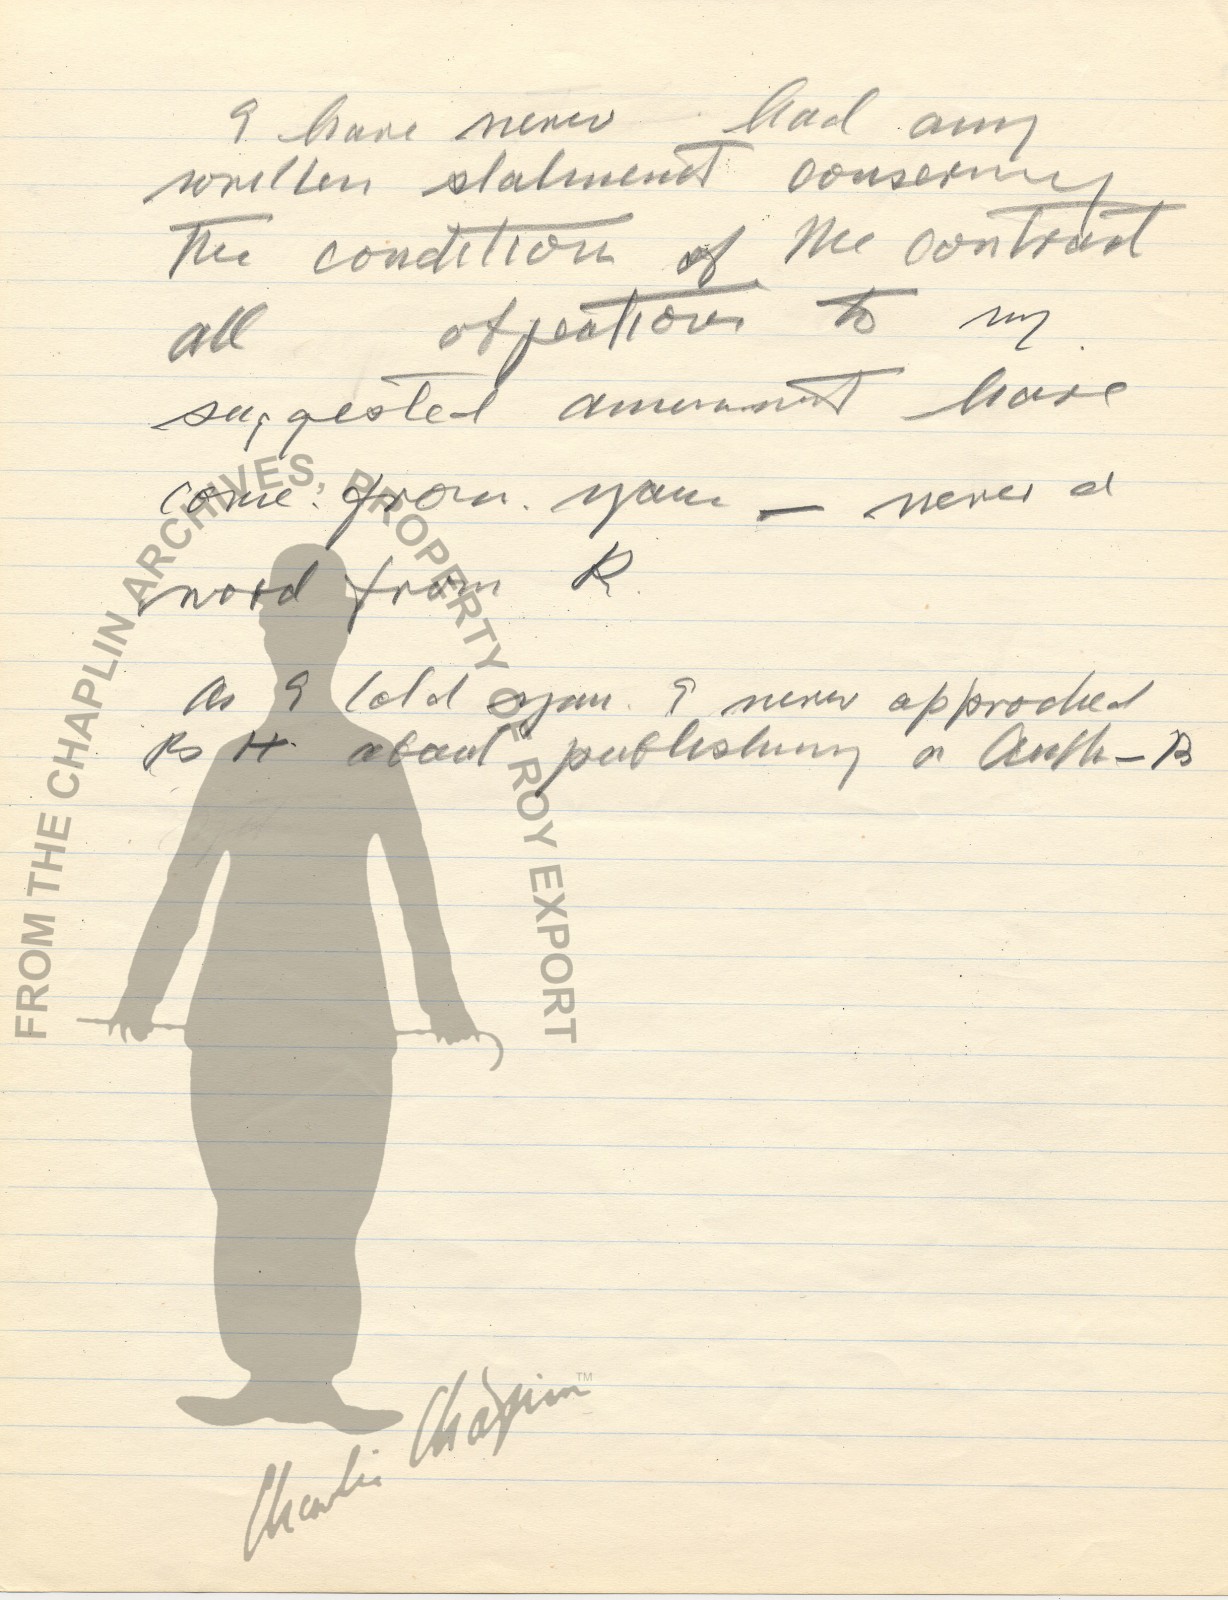 I have never had any
written statment conserning
the condition of the contract
all objections to my
suggested amenment have
come from you — never a
word from R.
As I told you. I never approched
B H about publishing a Auth-B
FROM THE CHAPLIN ARCHIVES, PROPERTY OF ROY EXPORT
Charlie Chaplin TM